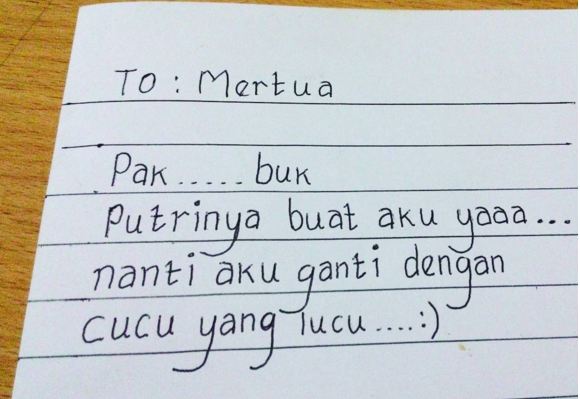 To : Mertua
Pak ..... buk
Putrinya buat aku yaaa...
nanti aku ganti dengan
cucu yang lucu ....:)